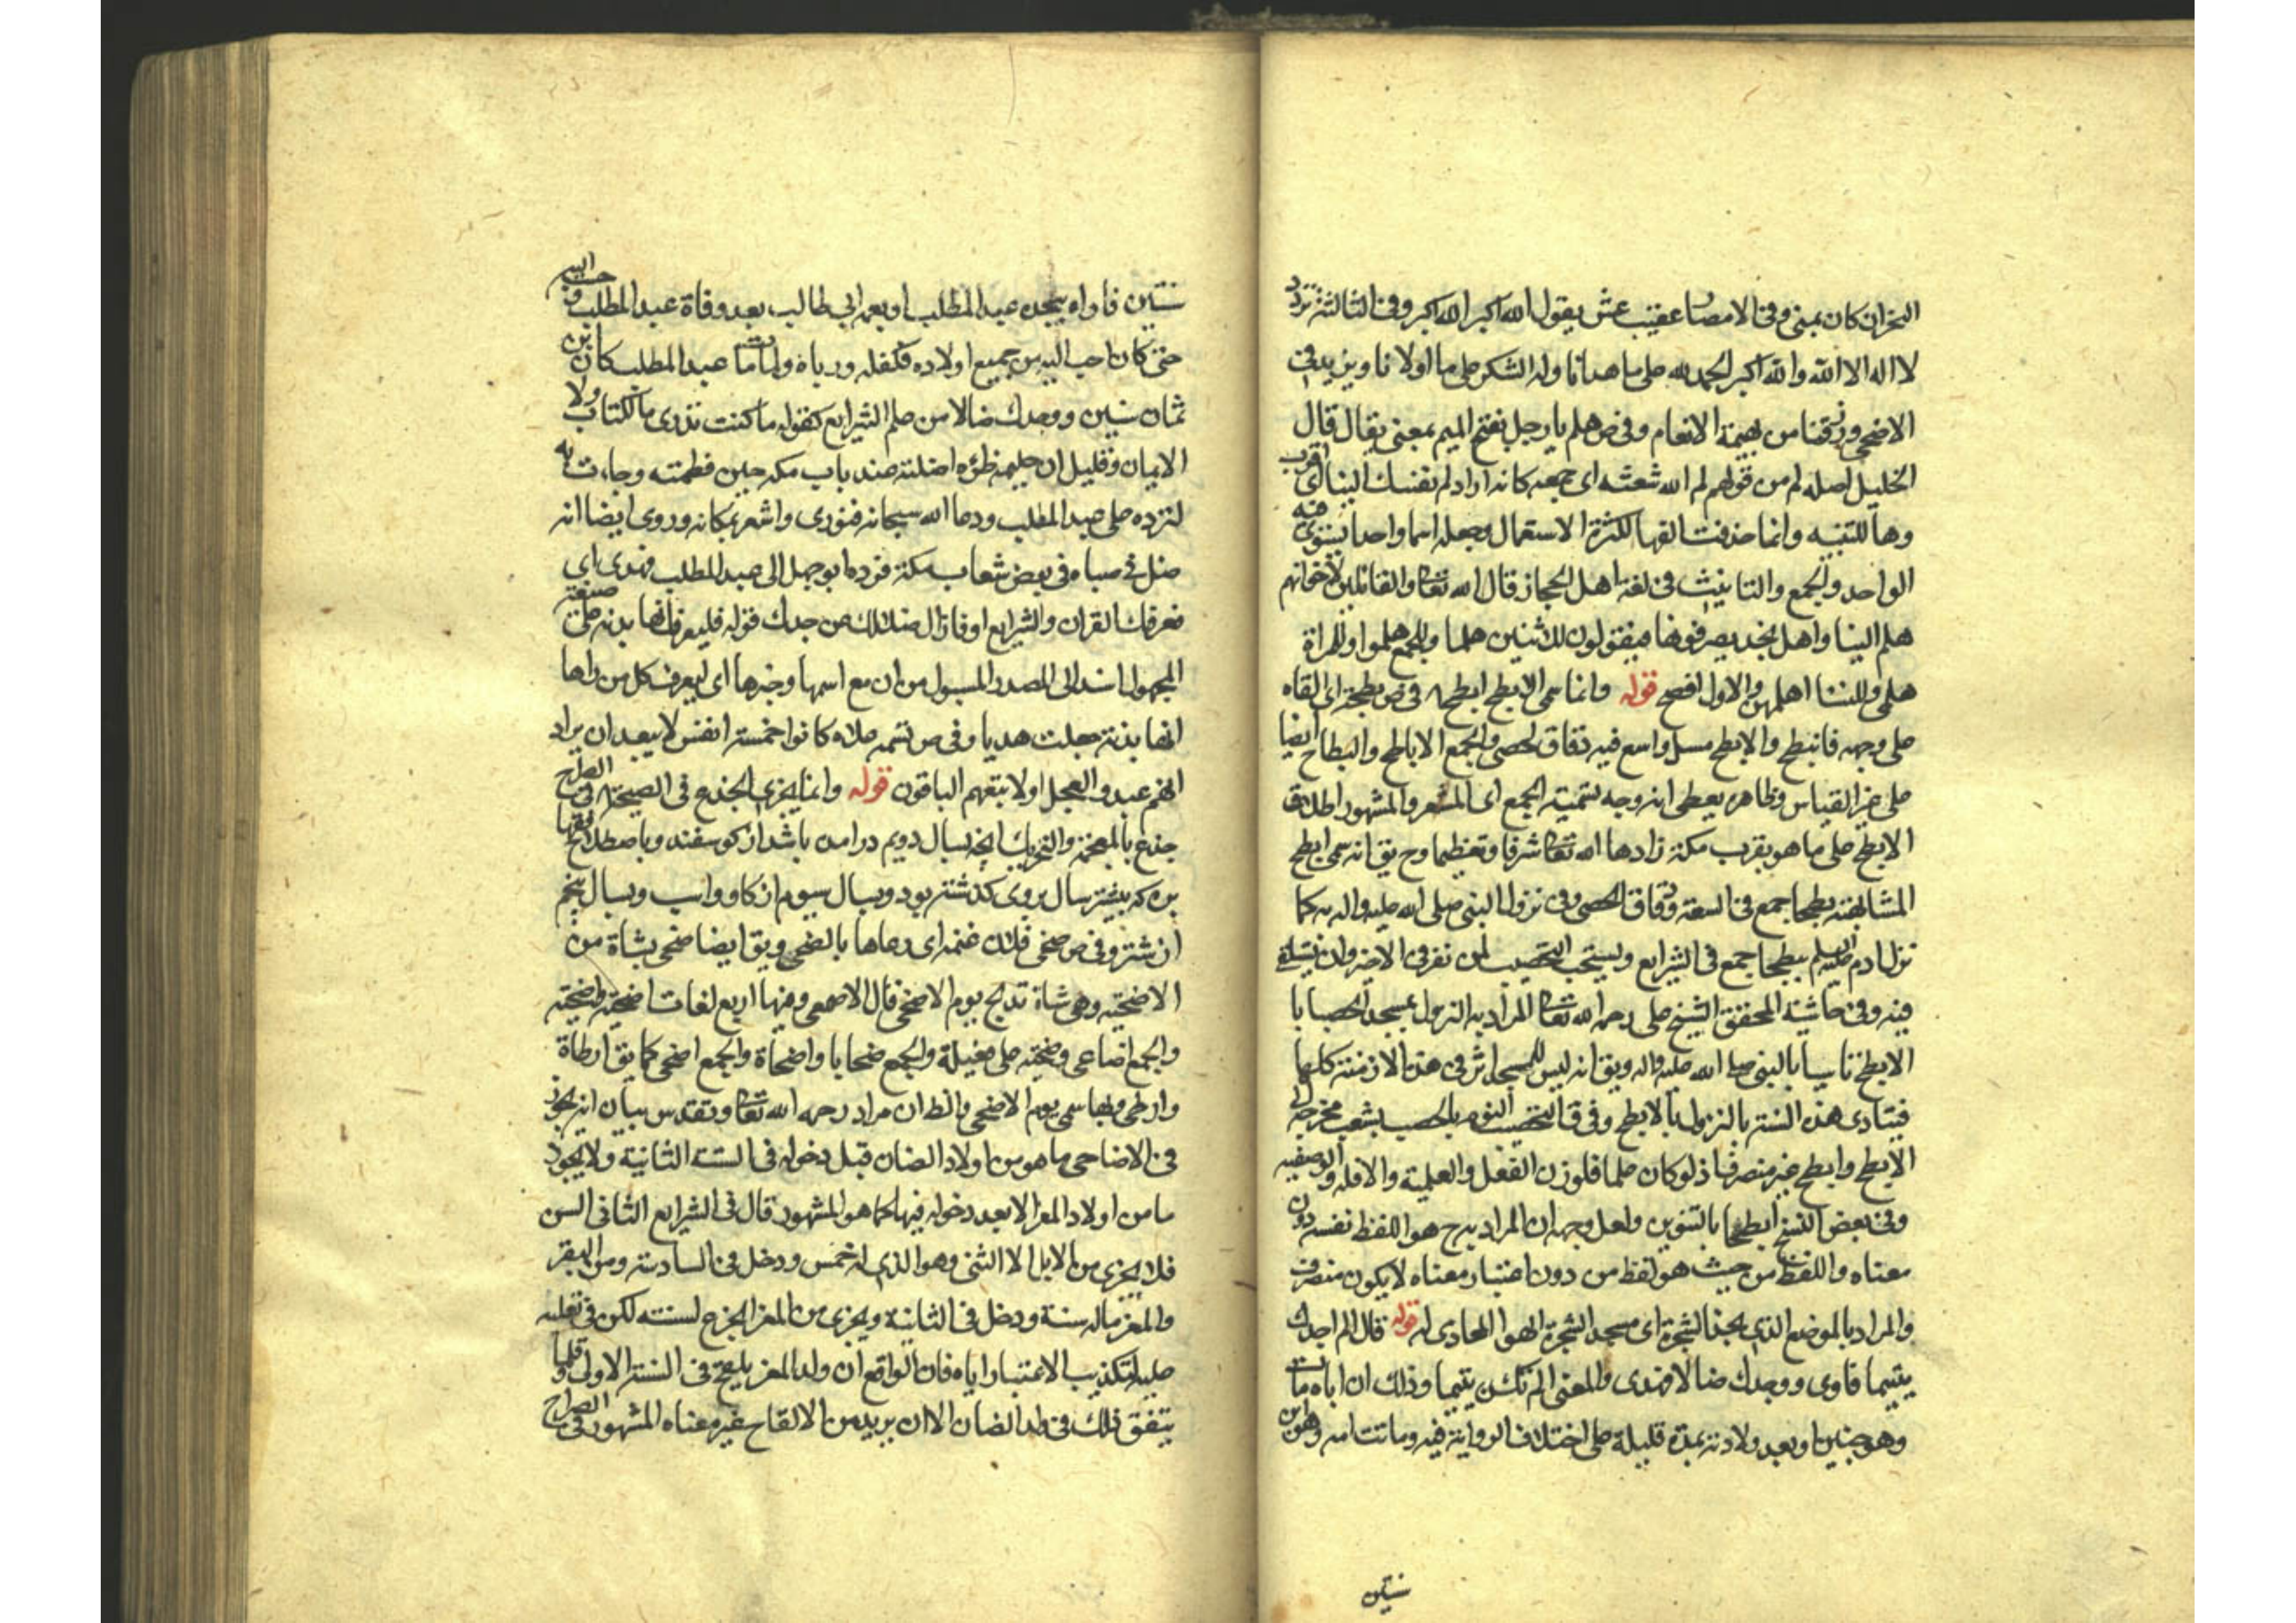 النحر ان كان بمنى وفى الامصار عقيب عشر يقول الله اكبر الله اكبر وفى الثالثة تردد
لا اله الا الله والله اكبر الحمد لله على ما هدانا وله الشكر على ما اولانا ويزيد فى
الاضحى ورزقنا من بهيمة الانعام وفى ص هلم يا رجل بفتح الميم بمعنى يقال قال
الخليل اصله لم من قولهم لم الله شعثه اى جمعه كانه اراد لم نفسك الينا اى اقرب
وها للتنبيه وانما حذفت الفها لكثرة الاستعمال وجعله اسما واحدا يستوى فيه
الواحد والجمع والتانيث فى لغة اهل الحجاز قال الله تعالى والقائلين لاخوانهم
هلم الينا واهل نجد يصرفونها فيقولون للاثنين هلما وللجمع هلموا وللمراة
هلمى وللنسا اهلمن والاول افصح قوله وانما سمى الابطح ابطح فى ص بطحه اى القاه
على وجهه فانبطح والابطح مسيل واسع فيه دقاق الحصى والجمع الاباطح والبطاح ايضا
على غير القياس وظاهره يعطى انه وجه تسمية الجمع اى المشعر والمشهور اطلاق
الابطح على ما هو بقرب مكة زادها الله تعالى شرفا وتعظيما وح يق انه سمى ابطح
لمشابهته بطحا جمع فى السعة ودقاق الحصى وفى نزول النبى صلى الله عليه واله به كما
نزل ادم عليه السلم ببطحا جمع فى الشرايع ويستحب التحصيب لمن نفر فى الاخير وان يستلقى
فيه وفى حاشية المحقق الشيخ على رحمه الله تعالى المراد به النزول بمسجد الحصبا با
الابطح تاسيا بالنبى صلى الله عليه واله ويق انه ليس للمسجد اثر فى هذه الازمنة كلها
فيتادى هذه السنة بالنزول بالابطح وفى ق التحصيب النوم بالمحصب بشعب مخرجه الى
الابطح وابطح غير منصرف اذ لو كان علما فلوزن الفعل والعلمية والا فله والوصفيه
وفى بعض النسخ ابطحا بالتنوين ولعل وجهه ان المراد به ح هو اللفظ نفسه دون
معناه واللفظ من حيث هو لفظ من دون اعتبار معناه لا يكون منصرف
والمراد بالموضع الذى بحذا الشجرة اى مسجد الشجرة الهوا المحاذى له قوله قال الم اجدك
يتيما فاوى ووجدك ضالا فهدى والمعنى الم تكن يتيما وذلك ان اباه مات
وهو جنين او بعد ولادته بمدة قليلة على اختلاف الرواية فيه وماتت امه وهو ابن
سنتين
سنتين فاواه بجده عبد المطلب او بعمه ابى طالب بعد وفاة عبد المطلب وحببه اليه
حتى كان احب اليه من جميع اولاده فكفله ورباه ولما مات عبد المطلب كان ابن
ثمان سنين ووجدك ضالا من علم الشرايع كقوله ما كنت تدرى ما الكتاب ولا
الايمان وقليل ان حليمة ظئره اضلته عند باب مكه حين فطمته وجاءت به
لترده على عبد المطلب ودعا الله سبحانه فنودى واشعر بمكانه وروى ايضا انه
ضل فى صباه فى بعض شعاب مكة فرده ابو جهل الى عبد المطلب فهدى اى
فعرفك القران والشرايع او فازال ضلالك عن جدك قوله فليعرف انها بدنه على صيغة
المجهول اسند الى المصدر المسبوك من ان مع اسمها وخبرها اى ليعرف كل من راها
انها بدنة جعلت هديا وفى ص تتمه صلاه كانوا خمسة انفس لا يبعد ان يراد
انهم عبدو العجل اولا تبعهم الباقون قوله وانما يجزى الجذع فى الصحيح وفى الصراح
جذع بالمعجمة والتحريك انچه بسال دويم درامده باشد از كوسفند وباصطلاح فقها
بره كه بيشتر سال بروى كذشته بود وبسال سيوم از كاو واسب وبسال پنجم
از شتر وفى ص ضحى فلان غنمه اى رعاها بالضحى ويق ايضا ضحى بشاة من
الاضحية وهى شاة تذبح يوم الاضحى قال الاصمعى وفيها اربع لغات اضحية واضحية
والجمع اضاحى وضحية على فعيلة والجمع ضحايا واضحاة والجمع اضحى كما يق ارطاة
وارطى وبها سمى يوم الاضحى والظ ان مراده رحمه الله تعالى وتقدس بيان انه يجوز
فى الاضاحى ما هو من اولاد الضان قبل دخوله فى السنة الثانية ولا يجوز
ما من اولاد المعز الا بعد دخوله فيها كما هو المشهور قال فى الشرايع الثانى السن
فلا يجزى من الابل الا الثنى وهو الذى له خمس ودخل فى السادسة ومن البقر
والمعز ماله سنة ودخل فى الثانية ويجزى من المعز الجذع لسنته لكن فى تعليله
عليه لتكذيب الاعتبار اياه فان الواقع ان ولد المعز يلقح فى السنة الاولى وقلما
يتفق ذلك فى ولد الضان الا ان يريد من الالقاح غير معناه المشهور فى الصراح